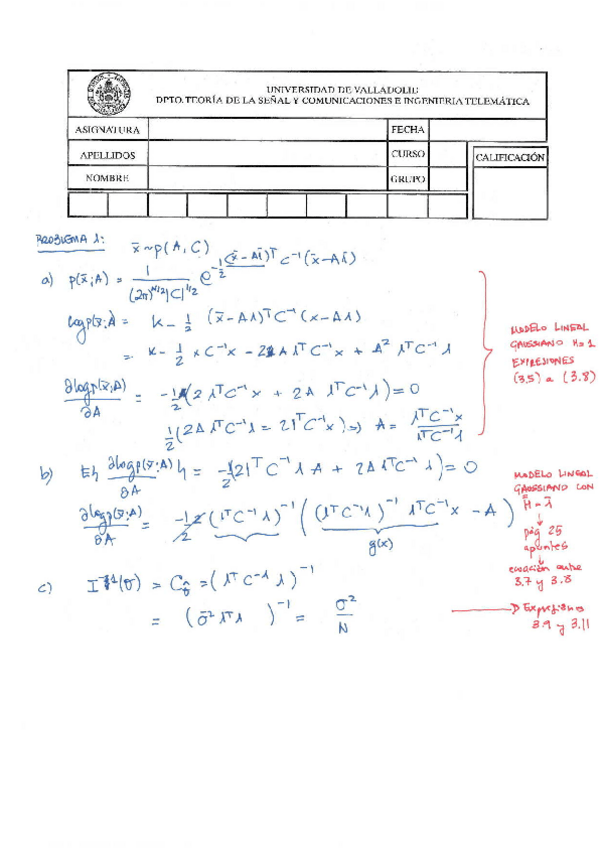 UNIVERSIDAD DE VALLADOLID
DPTO. TEORÍA DE LA SEÑAL Y COMUNICACIONES E INGENIERIA TELEMÁTICA
ASIGNATURA
FECHA
APELLIDOS
CURSO
CALIFICACIÓN
NOMBRE
GRUPO
PROBLEMA 1: x̄ ~ p(A, C)
a) p(x̄; A) = 1 / ((2π)^{N/2} |C|^{1/2}) e^{-1/2 (x̄ - A1̄)^T C^{-1} (x̄ - A1̄)}
log p(x̄; A) = K - 1/2 (x̄ - A1)^T C^{-1} (x - A1)
= K - 1/2 x C^{-1} x - 2A 1^T C^{-1} x + A^2 1^T C^{-1} 1
∂log p(x̄; A) / ∂A = -1/2 (2 1^T C^{-1} x + 2A 1^T C^{-1} 1) = 0
1/2 (2A 1^T C^{-1} 1 = 2 1^T C^{-1} x) => A = 1^T C^{-1} x / 1^T C^{-1} 1
MODELO LINEAL
GAUSSIANO H = 1
EXPRESIONES
(3.5) a (3.8)
b) E{ ∂log p(x̄; A) / ∂A } = -1/2 (2 1^T C^{-1} 1 A + 2A 1^T C^{-1} 1) = 0
∂log p(x̄; A) / ∂A = -1/2 2 (1^T C^{-1} 1)^{-1} ( (1^T C^{-1} 1)^{-1} 1^T C^{-1} x - A )
g(x)
MODELO LINEAL
GAUSSIANO CON
H = 1̄
↓
pág 25
apuntes
↓
ecuación entre
3.7 y 3.8
c) I^{-1}(θ) = C_θ̂ = (1^T C^{-1} 1)^{-1}
= (σ̄^2 1^T 1)^{-1} = σ^2 / N
Expresiones
3.9 y 3.11